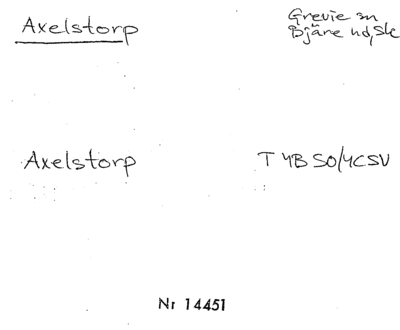 Axelstorp
Grevie sn
Bjäre hd, Sk
Axelstorp
T 4B SO/4C SV
Nr 14451